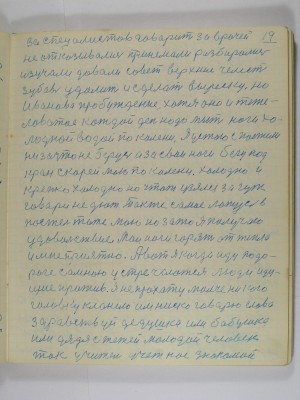 за специалистов говорит за врачей 19
не отказывались принемали разбирались
изучали довали совет верхнию челюсть
зубов удалить и сделать вырезку, но
Иванова пробуждение хотя оно и тяже-
ловатое каждой день надо мыть ноги хо-
лодной водой по колени, Я
низачто не берусь а за свои ноги берусь под
кран скорей мою по колени, холодно и
крепко холодно но этот взялся за гуж
говари не дюж. Так же самое ложусь в
постел тоже мою но зато я получаю
удовольствие Мои ноги горят от тепла
и мне приятно. А вот я когда иду по до-
роге самною устречаются люди иду-
щие против. Я не прохожу молча ни кого
человеку кланяюсь им низко говарю слова
здравствуй дедушка или бабушка
или дядя с тетей молодой человек
так учител учит нас знакомой